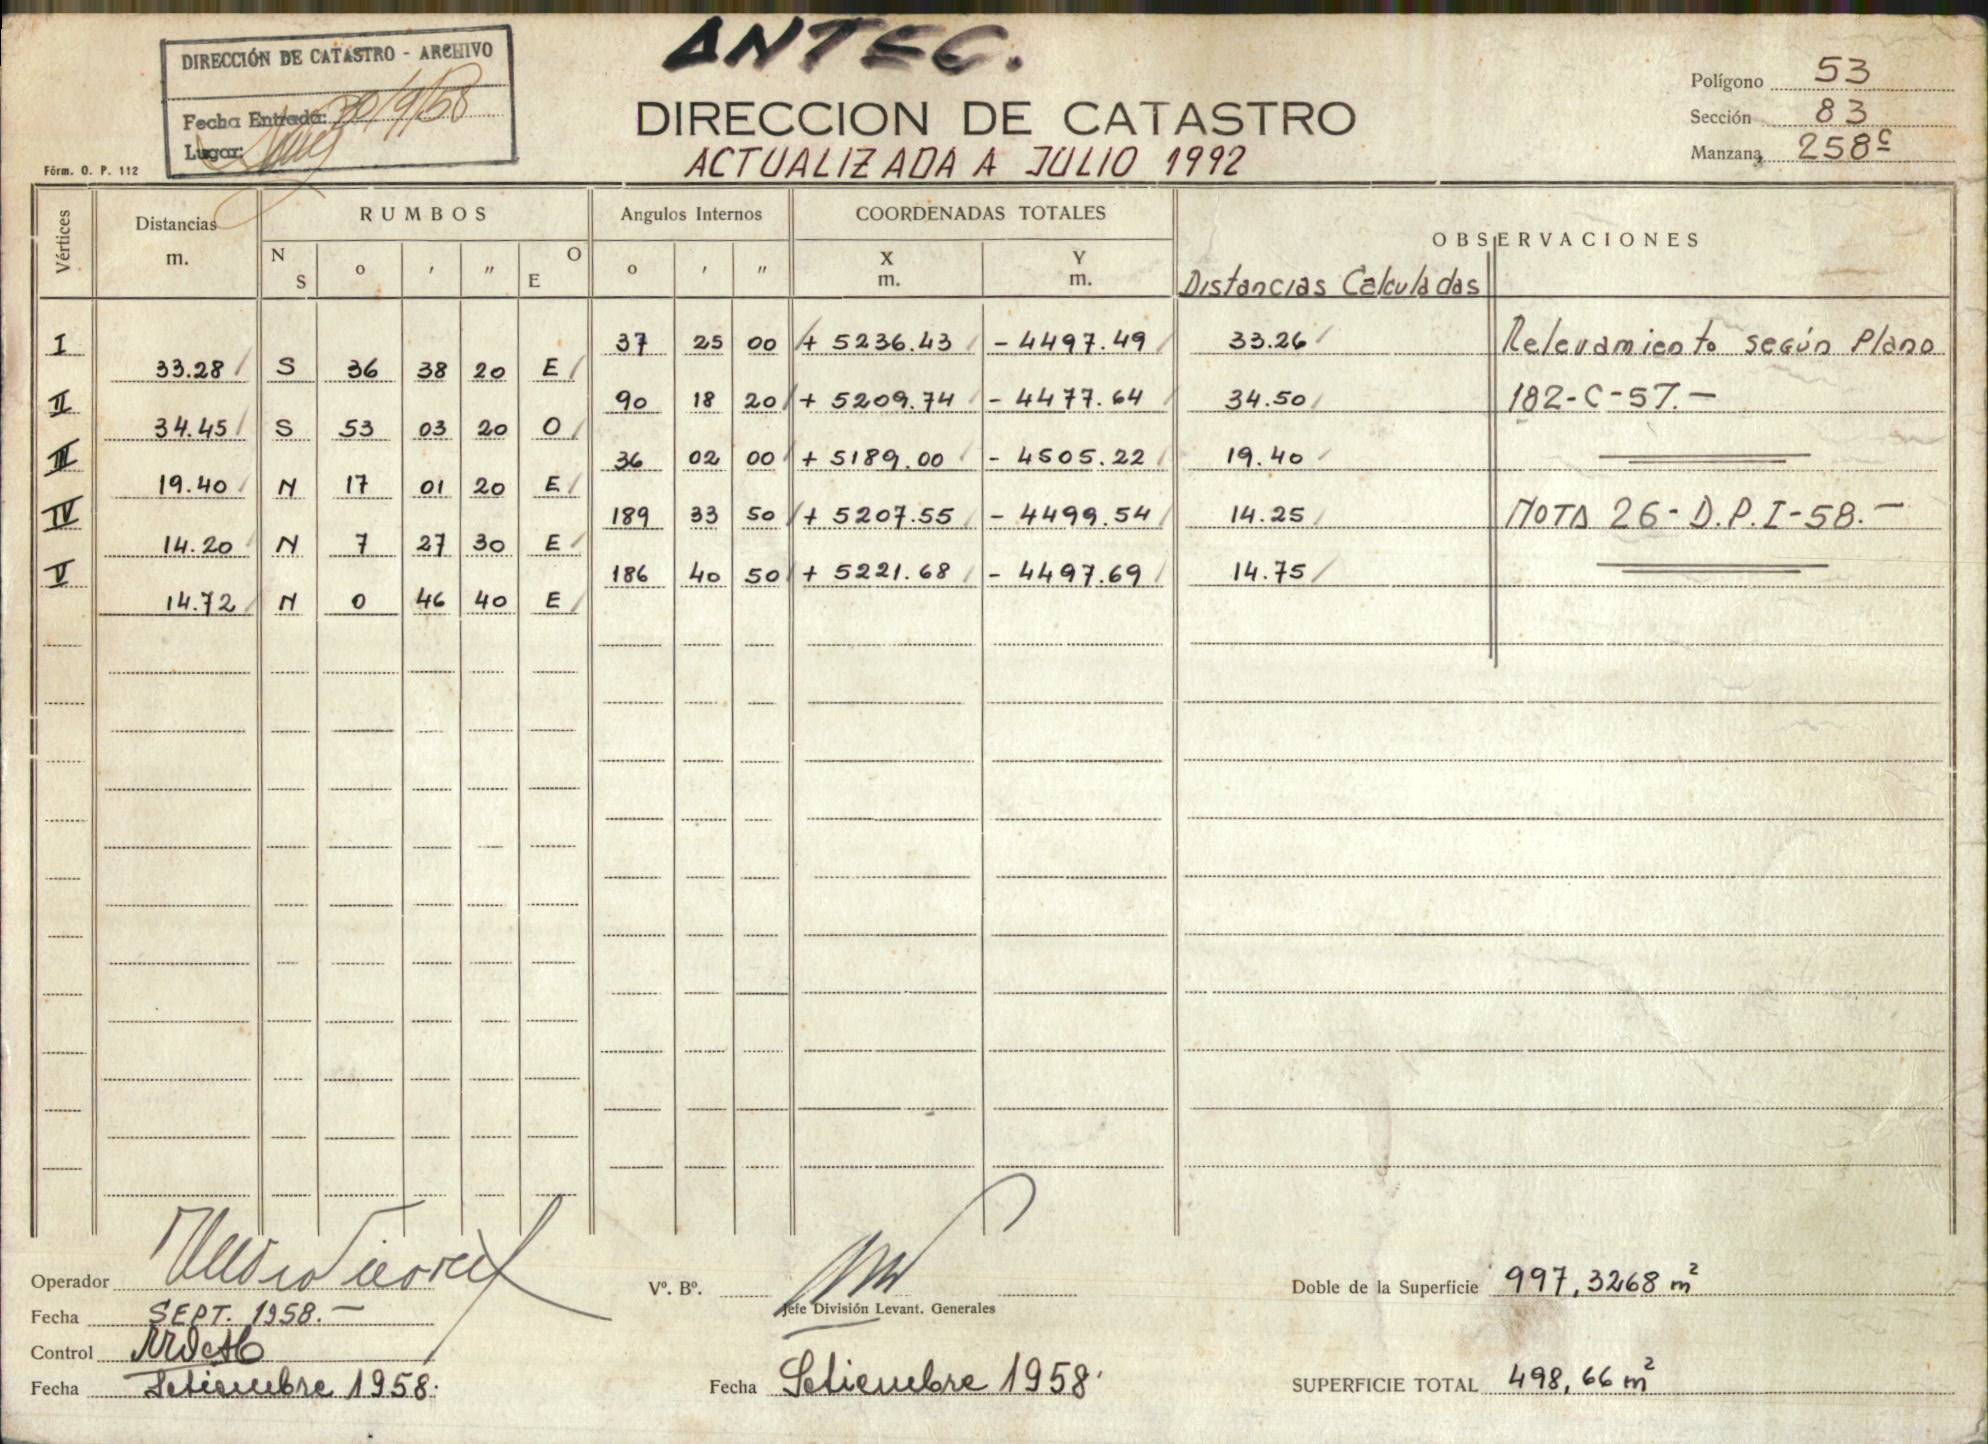 ANTEC.
DIRECCIÓN DE CATASTRO - ARCHIVO
Fecha Entrada: 30/9/58
Lugar:
Fórm. O. P. 112
DIRECCION DE CATASTRO
ACTUALIZADA A JULIO 1992
Polígono 53
Sección 83
Manzana 258c
Vértices Distancias m. RUMBOS Angulos Internos COORDENADAS TOTALES OBSERVACIONES
N S o ' " O E o ' " X m. Y m. Distancias Calculadas
I 37 25 00 + 5236.43 - 4497.49 33.26 Relevamiento según Plano
33.28 S 36 38 20 E
II 90 18 20 + 5209.74 - 4477.64 34.50 182-C-57.-
34.45 S 53 03 20 O
III 36 02 00 + 5189.00 - 4505.22 19.40
19.40 N 17 01 20 E
IV 189 33 50 + 5207.55 - 4499.54 14.25 NOTA 26-D.P.I-58.-
14.20 N 7 27 30 E
V 186 40 50 + 5221.68 - 4497.69 14.75
14.72 N 0 46 40 E
Operador
Fecha SEPT. 1958.-
Control
Fecha Setiembre 1958.
Vº. Bº.
Jefe División Levant. Generales
Fecha Setiembre 1958.
Doble de la Superficie 997,3268 m²
SUPERFICIE TOTAL 498,66 m²